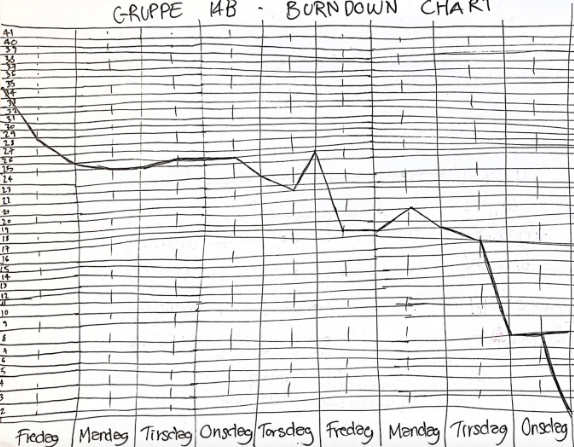 GRUPPE 14B - BURNDOWN CHART
41
40
39
38
37
36
35
34
33
32
31
30
29
28
27
26
25
24
23
22
21
20
19
18
17
16
15
14
13
12
11
10
9
8
7
6
5
4
3
2
Fredag Mandag Tirsdag Onsdag Torsdag Fredag Mandag Tirsdag Onsdag